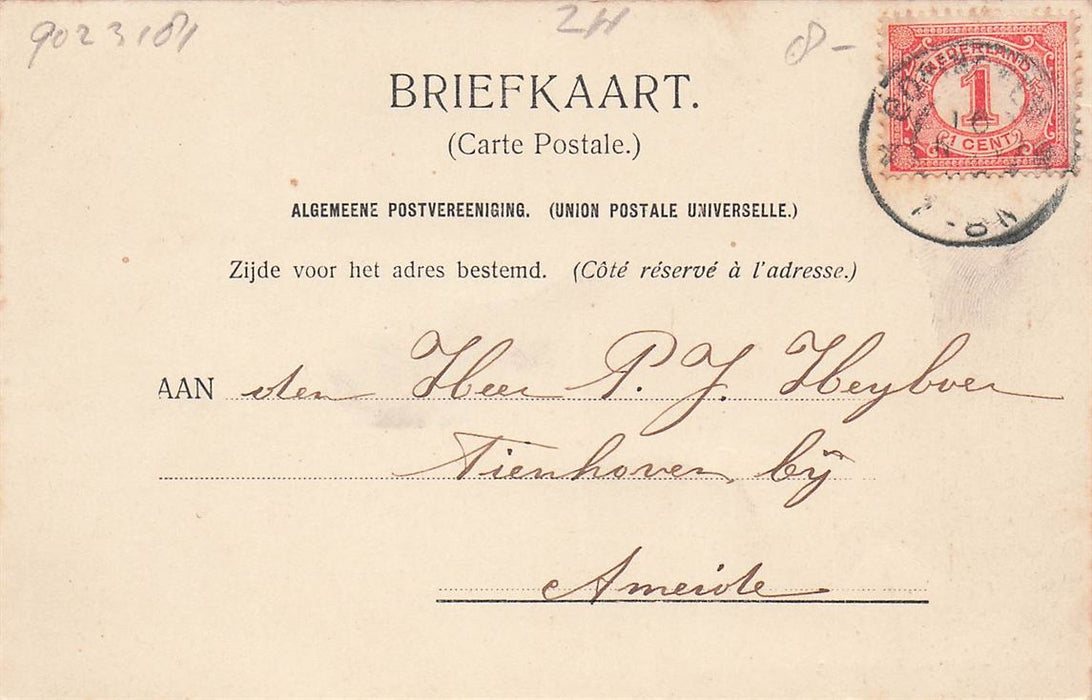 9023181
2H
8-
NEDERLAND
1
1 CENT
BRIEFKAART.
(Carte Postale.)
ALGEMEENE POSTVEREENIGING. (UNION POSTALE UNIVERSELLE.)
Zijde voor het adres bestemd. (Côté réservé à l'adresse.)
AAN den Heer P. J. Heyboer
Tienhoven bij
Ameide